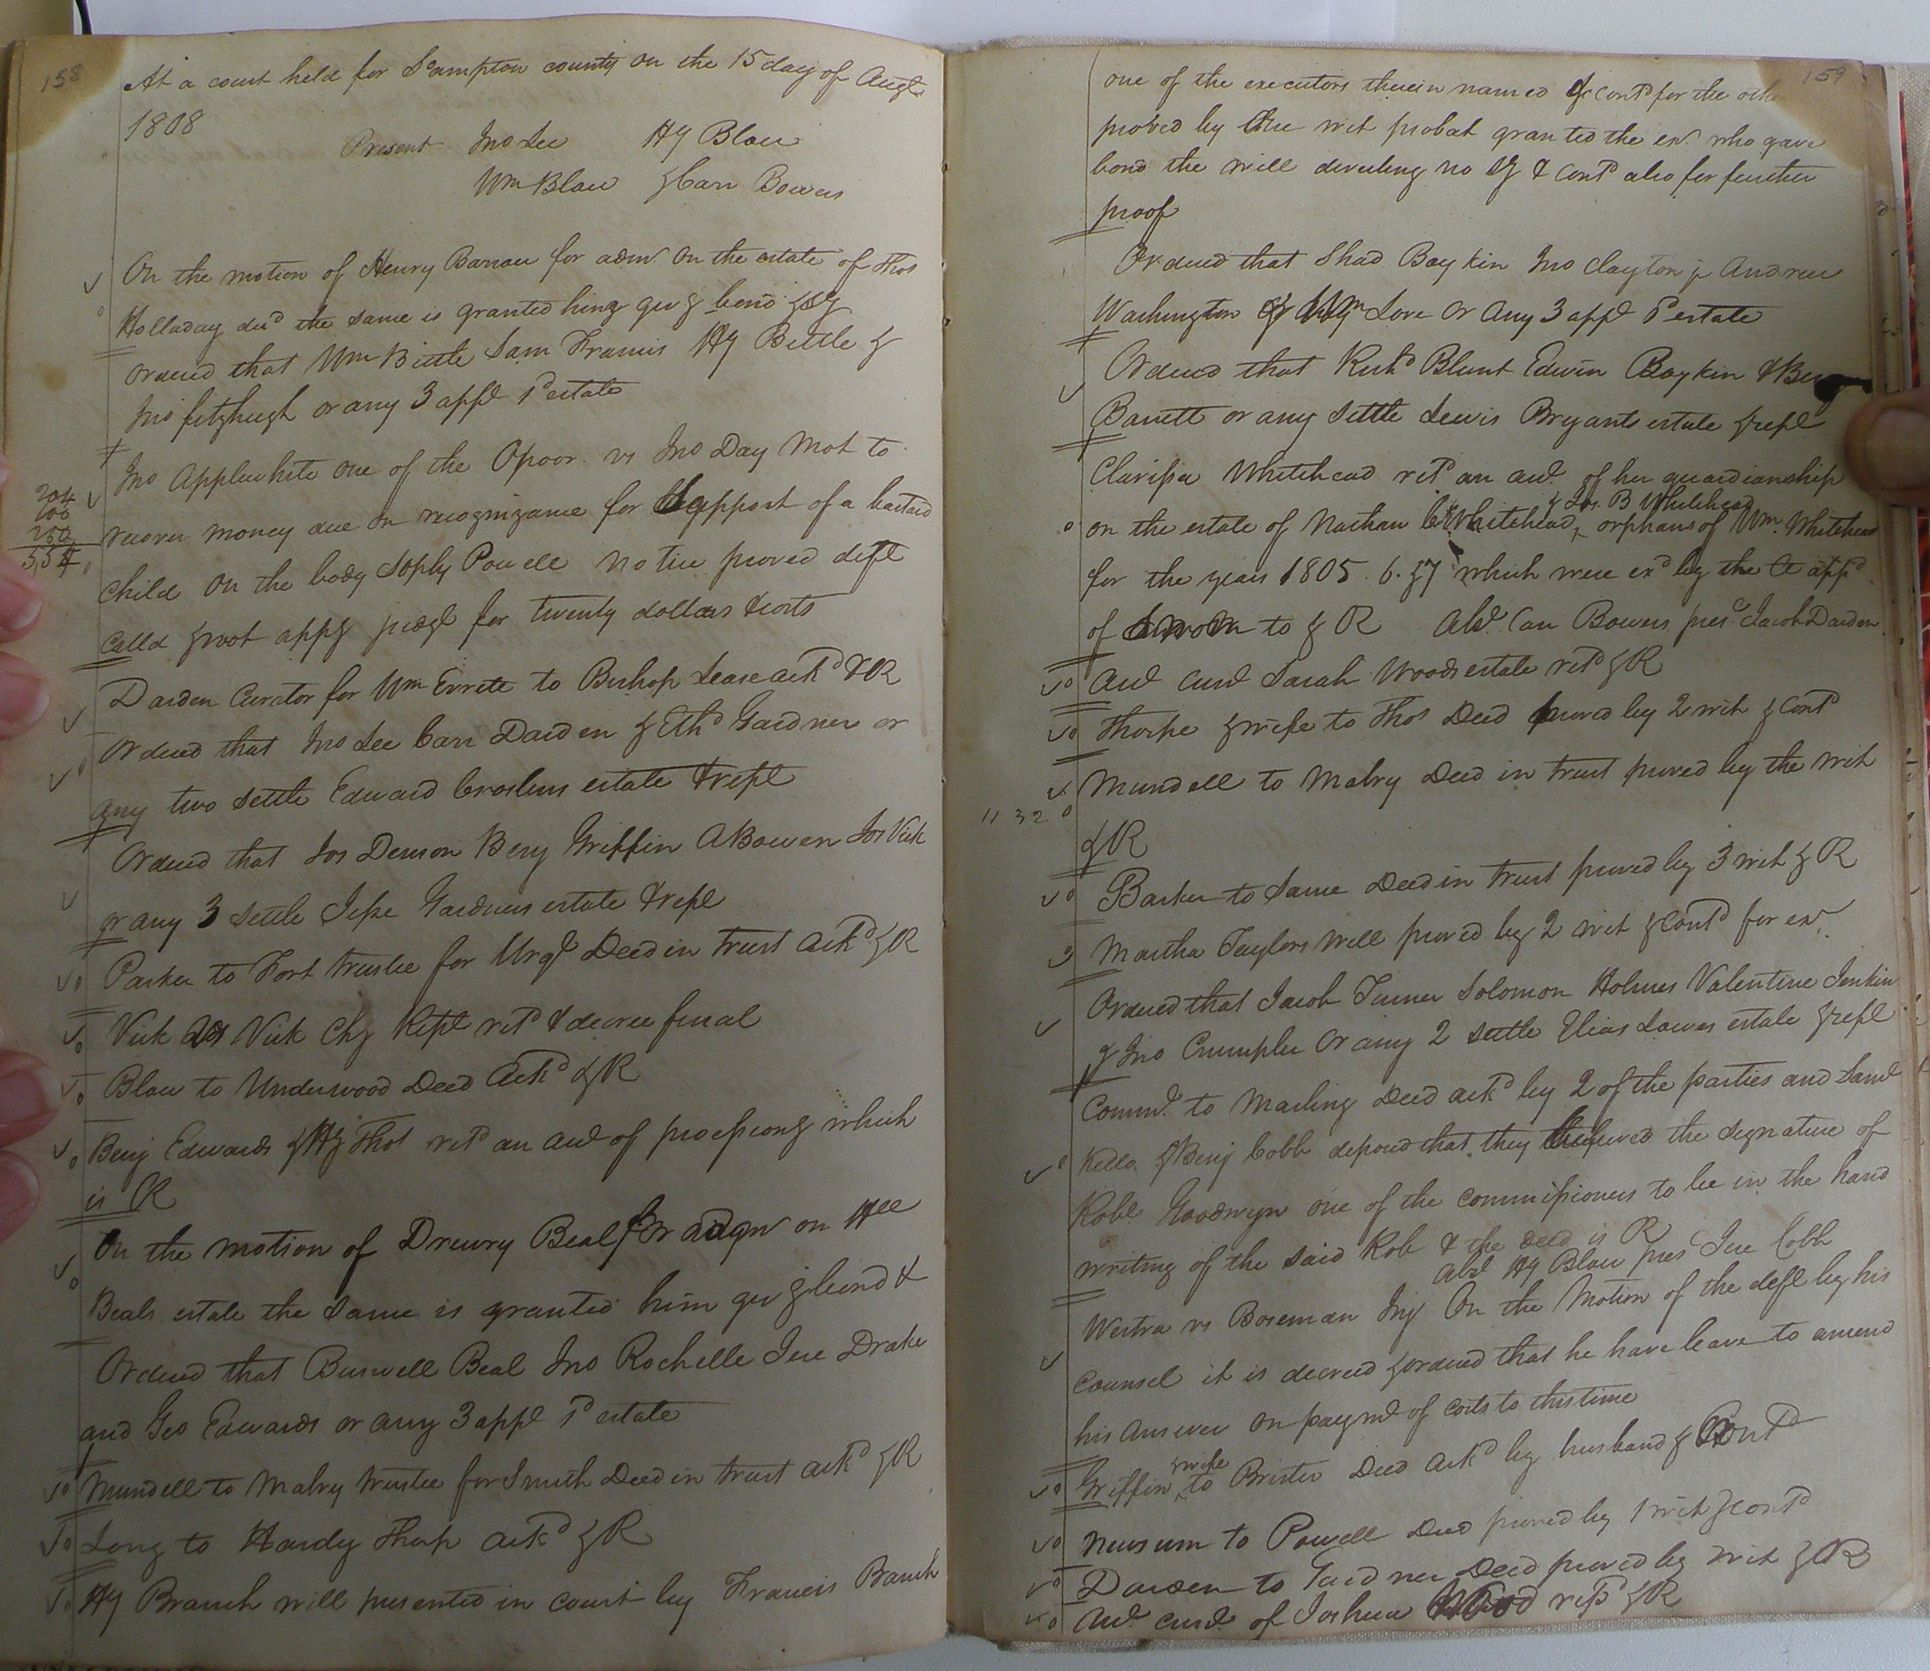 158
At a court held for Sᵒampton county on the 15 day of Augt
1808
Present Jno Lee Hy Blow
Wm Blow & Carr Bowers
On the motion of Henry Barrow for admr on the estate of Thos
Holladay decd the same is granted him givg bond & sy
Ordered that Wm Bittle Sam Francis Hy Bittle &
Jno fitzhugh or any 3 appl sd estate
Jno Applewhite one of the Opoor vs Jno Day Mot to
recover money due on recognizance for support of a bastard
204
100
250
554
child on the body Sophy Powell notice proved deft
calld & not appg judgt for twenty dollars & costs
Darden Curator for Wm Evrite to Bishop Lease ackd & R
Ordered that Jno Lee Carr Darden & Ethd Gardner or
any two settle Edward estate & rept
Ordered that Jos Denson Benj Griffin A Bowen Jos Vick
or any 3 settle Jesse Gardners estate & rept
Parker to Fort trustee for Urqt Deed in trust ackd & R
Vick vs Vick Chy Rept retd & decree final
Blow to Underwood Deed ackd & R
Benj Edwards & Hy Thos retd an acct of processiong which
is R
On the motion of Drewry Beal for admr on
Beals estate the same is granted him givg bond &
Ordered that Burwell Beal Jno Rochelle Jere Drake
and Geo Edwards or any 3 appl sd estate
Mundell to Mabry trustee for Smith Deed in trust ackd & R
Long to Hardy Thorp ackd & R
Hy Branch will presented in court by Francis Branch
159
one of the executors therein named & contd for the
proved by the wit probat granted the exr who gave
bond the will directing no sy & contd also for further
proof
Ordered that Shad Boykin Jno Clayton jr Andrew
Washington & Wm Love or any 3 appl sd estate
Ordered that Richd Blunt Edwin Boykin & Benj
Barrett or any settle Lewis Bryants estate & rept
Clarissa Whitehead retd an acct of her guardianship
& Jos. B Whitehead
on the estate of Nathan Whitehead, orphans of Wm. Whitehead
for the years 1805. 6. & 7 which were exd by the Ct appd
of sworn to & R Abst Carr Bowers prest Jacob Darden
Acct curt Sarah Woods estate retd & R
Thorpe & wife to Thos Deed proved by 2 wit & contd
Mundell to Mabry Deed in trust proved by the wit
11 32
& R
Barker to Same Deed in trust proved by 3 wit & R
Martha Taylors will proved by 2 wit & contd for exr
Ordered that Jacob Turner Solomon Holmes Valentine Jenkin
& Jno Crumpler or any 2 settle Elias Lawes estate & rept
Commrs to Mading Deed ackd by 2 of the parties and Saml
Kello & Benj Cobb deposed that they believed the signature of
Robt Goodwyn one of the commissioners to be in the hand
writing of the said Rob & the deed is R
Abst Hy Blow prest Jere Cobb
Westra vs Boseman Inj On the Motion of the deft by his
counsel it is decreed & ordered that he have leave to amend
his answer on paymt of costs to this time
Griffin & wife to Brister Deed ackd by husband & Contd
Newsum to Powell Deed proved by 1 wit & contd
Darden to Gardner Deed proved by wit & R
Acct curt of Joshua Wood retd & R